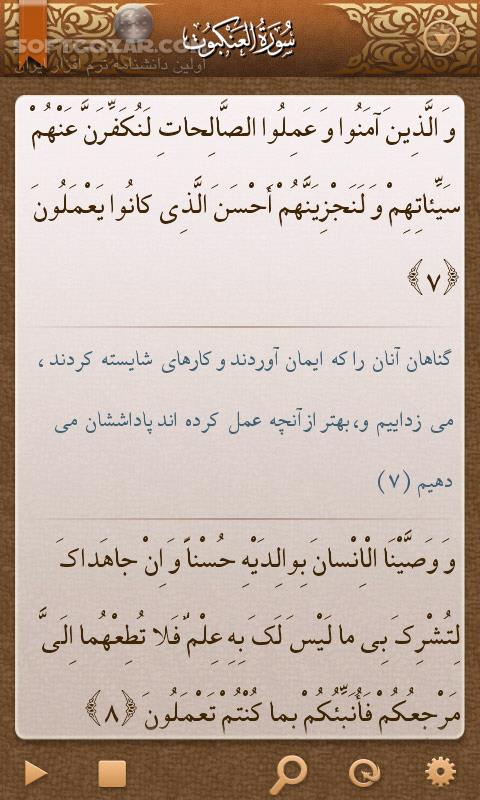 SOFTGOZAR.COM
اولین دانشنامه نرم افزار ایران
سُورَةُ العَنكبُوت
وَ الَّذِينَ آمَنُوا وَ عَمِلُوا الصَّالِحاتِ لَنُكَفِّرَنَّ عَنْهُمْ
سَيِّئاتِهِمْ وَ لَنَجْزِيَنَّهُمْ أَحْسَنَ الَّذِی كانُوا يَعْمَلُونَ
﴿٧﴾
گناهان آنان را که ایمان آوردند و کارهای شایسته کردند ،
می زداییم و،بهتر ازآنچه عمل کرده اند پاداششان می
دهیم (٧)
وَ وَصَّيْنَا الْإِنْسانَ بِوالِدَيْهِ حُسْناً وَ إِنْ جاهَداکَ
لِتُشْرِکَ بِی ما لَيْسَ لَکَ بِهِ عِلْمٌ فَلا تُطِعْهُما إِلَیَّ
مَرْجِعُكُمْ فَأُنَبِّئُكُمْ بِما كُنْتُمْ تَعْمَلُونَ ﴿٨﴾